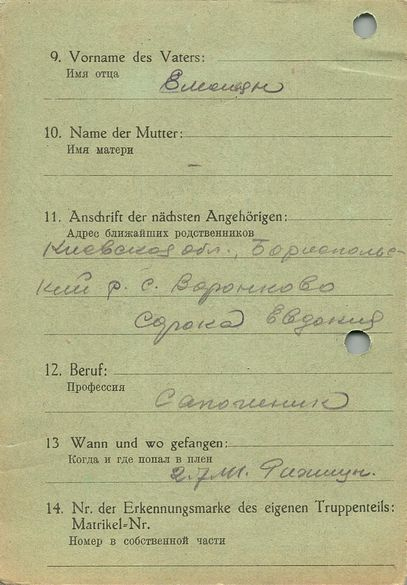 9. Vorname des Vaters:
Имя отца
Емельян
10. Name der Mutter:
Имя матери
–
11. Anschrift der nächsten Angehörigen:
Адрес ближайших родственников
Киевская обл., Бориспольс-
кий р. с. Воронково
Сорока Евдокия
12. Beruf:
Профессия
Сапожник
13 Wann und wo gefangen:
Когда и где попал в плен
2.7.41.
14. Nr. der Erkennungsmarke des eigenen Truppenteils:
Matrikel-Nr.
Номер в собственной части